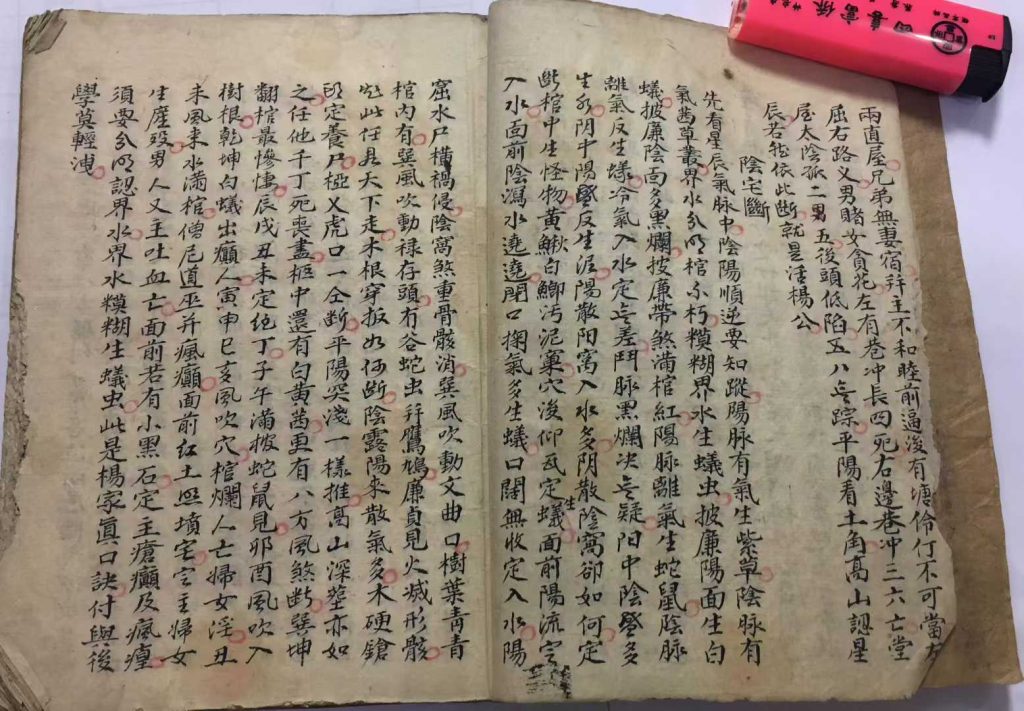 兩直屋兄弟無妻宿并主不和睦前逼後有塘伶仃不可當左
屈右路义男賭女貪花左有巷冲長四死右邊巷冲三六亡堂
屋太陰孤二男五後頭低陷五八無踪平陽看土角高山認星
辰若能依此斷就是活楊公
陰宅斷
先看星辰氣脉中陰陽順逆要知蹤陽脉有氣生紫草陰脉有
氣茜草叢界水分明棺不朽糢糊界水生蟻虫披廉陽面生白
蟻披廉陰面多黑爛披廉帶煞滿棺紅陽脉離氣生蛇鼠陰脉
離氣反生蟻冷氣入水定無差鬥脉黑爛决無疑阳中陰盛多
生水阴中陽盛反生泥陽散阳窩入水多阴散陰窩卻如何定
断棺中生怪物黃鰍白鱔汚泥巢穴後仰瓦定生蟻面前陽流定
入水面前陰瀉水遶遶閉口掬氣多生蟻口闊無收定入水陽
窟水尸橫禍侵陰窩煞重骨骸消巽風吹動文曲口樹葉青青
棺内有巽風吹動禄存頭有谷蛇虫并鷹鳩廉貞見火滅形骸
此任君天下走木根穿板如何断陰露陽來散氣多木硬鎗
砂定養尸極义虎口一仝断平陽突淺一樣推高山深塟亦如
之任他千丁死喪盡柩中還有白黃茜更有八方風煞断巽坤
翻棺最慘悽辰戌丑未定絕丁子午滿披蛇鼠見卯酉風吹入
樹根乾坤白蟻出癲人寅申巳亥風吹穴棺爛人亡婦女淫丑
未風來水滿棺僧尼道巫并瘋癲面前紅土照墳宅定主婦女
生產殁男人又主吐血亡面前若有小黑石定主瘡癲及瘋瘴
須要分明認界水界水糢糊生蟻虫此是楊家真口訣付與後
學莫輕洩